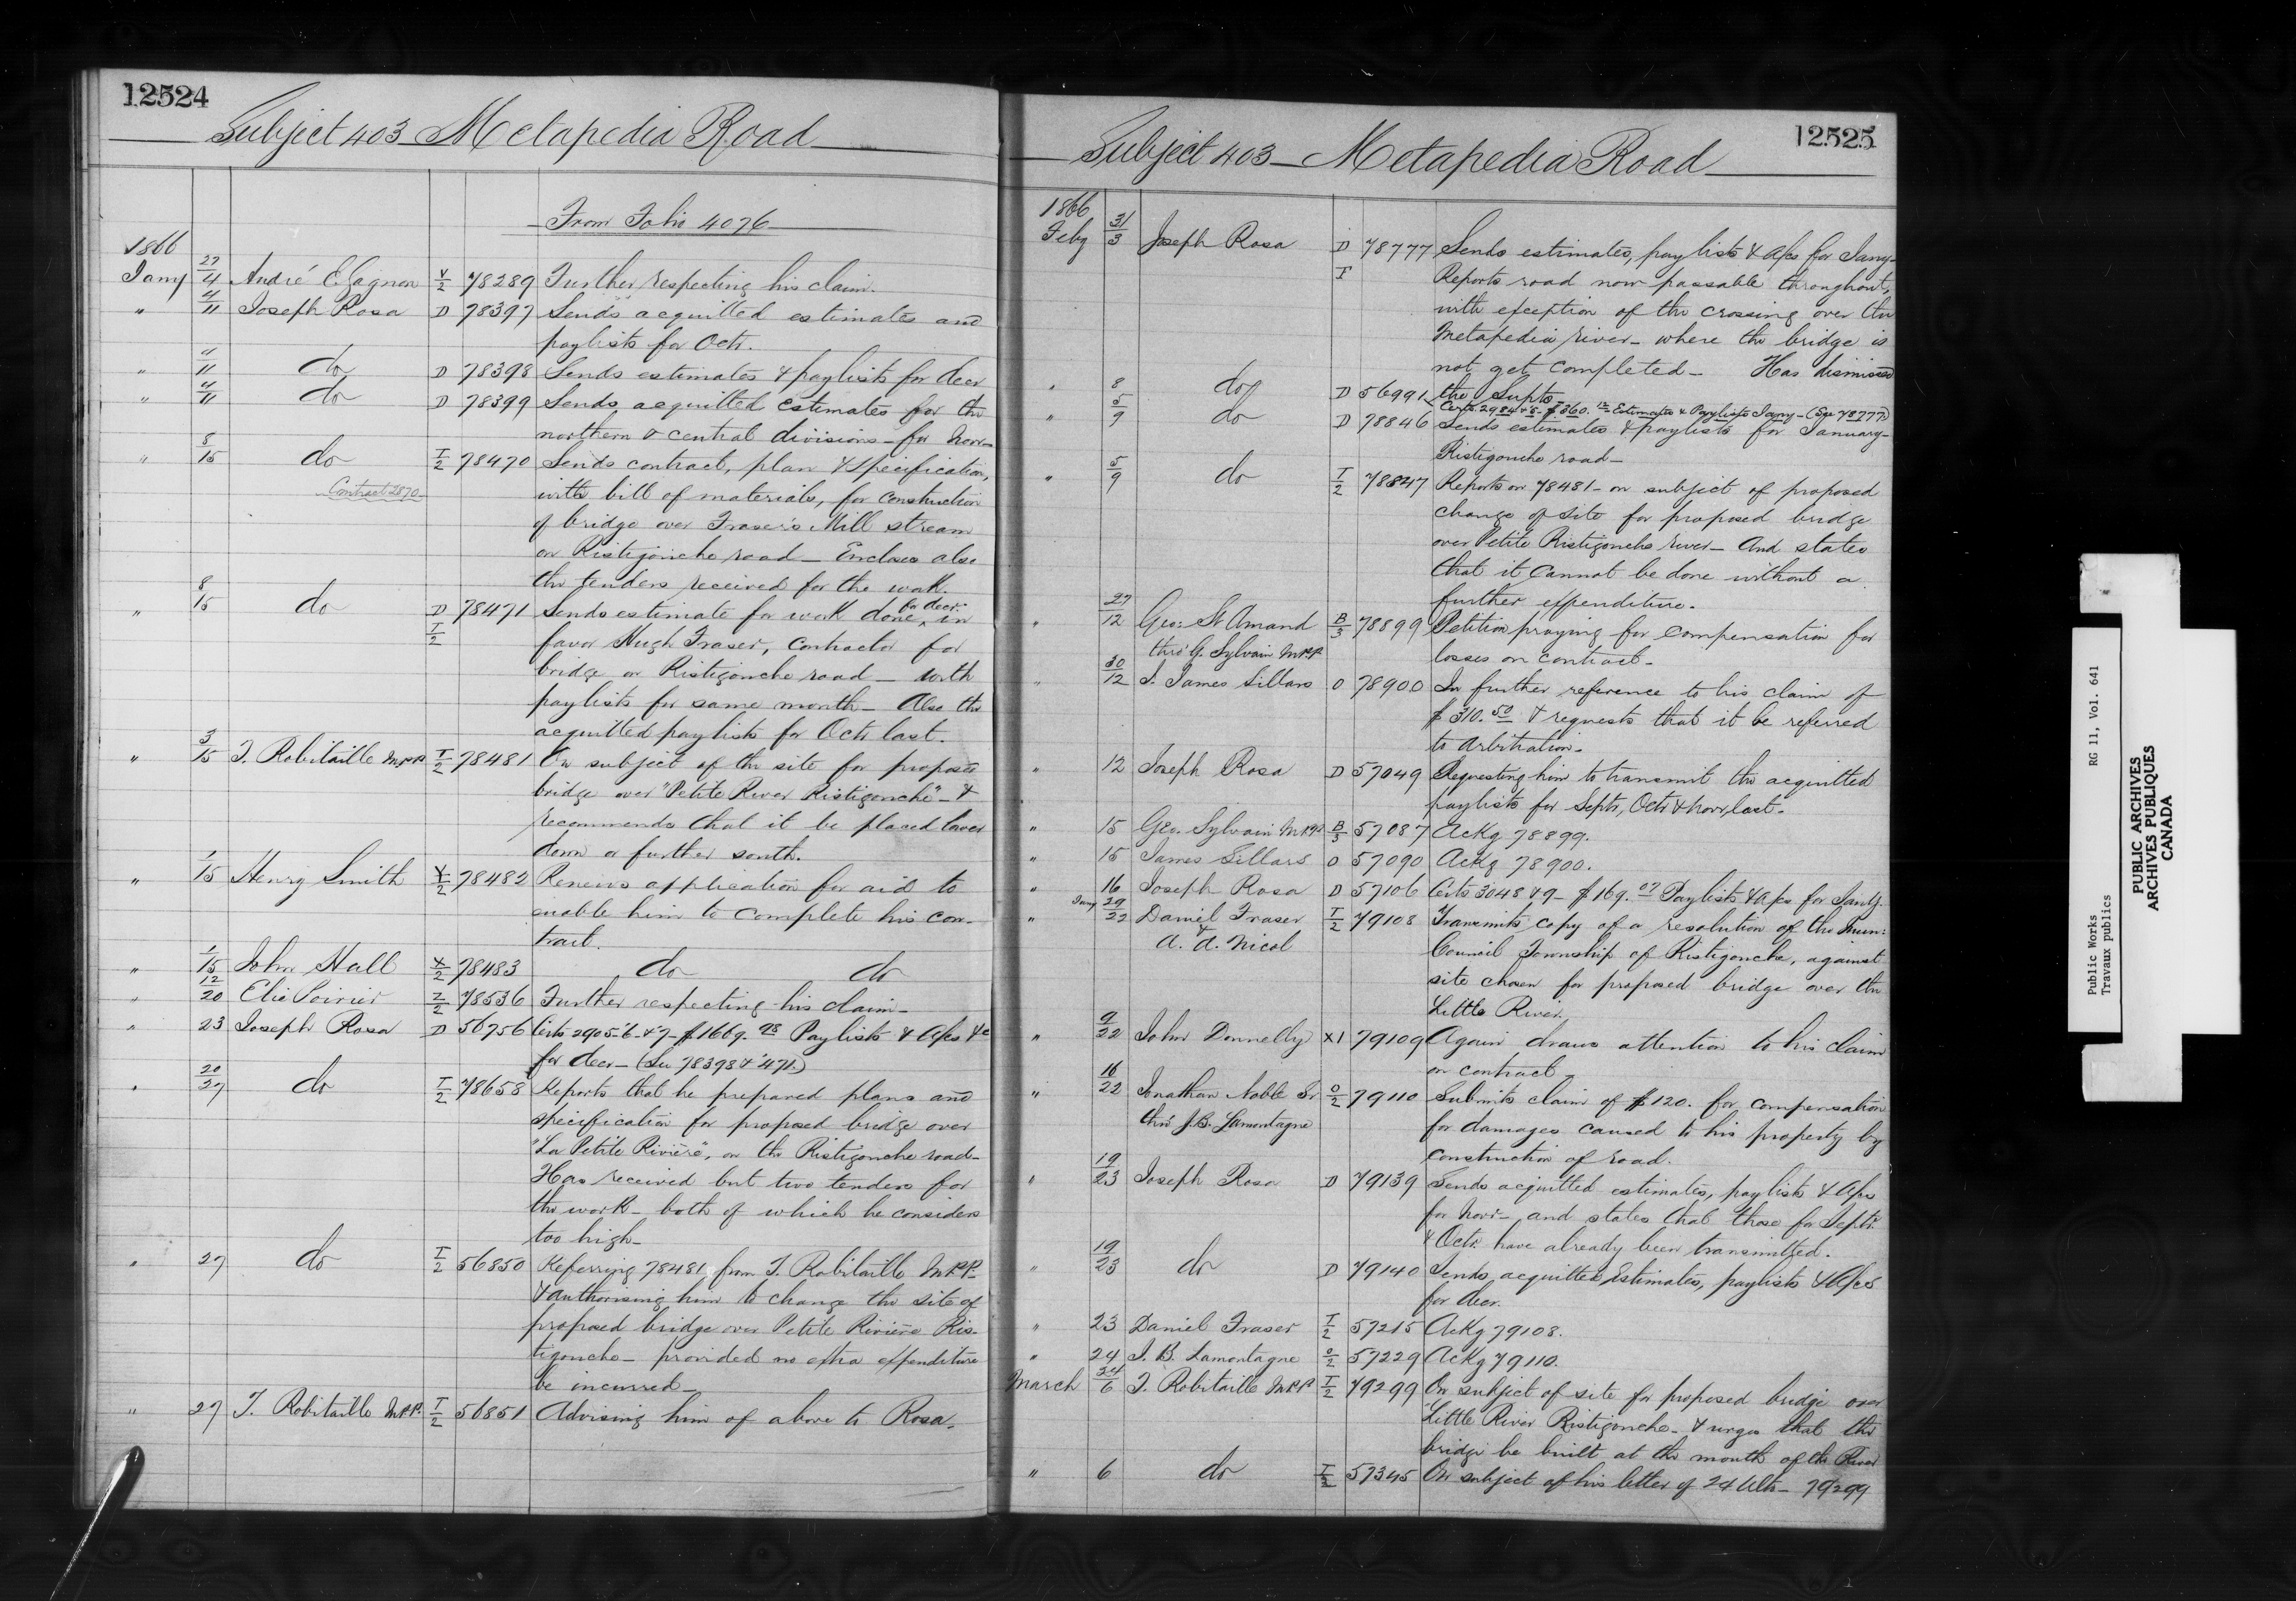 12524
Subject 403 - Metapedia Road
From Folio 4076
1866
Jany 27/4 André E. Gagnon V/2 78289 Further respecting his claim.
" 4/11 Joseph Rosa D 78397 Sends acquitted estimates and
paylists for Octr.
" 4/11 do D 78398 Sends estimates & paylists for decr
" 4/11 do D 78399 Sends acquitted estimates for the
northern & central divisions - for Novr -
" 8/15 do T/2 78470 Sends contract, plan & specification,
Contract 2870 with bill of materials, for construction
of bridge over Fraser's Mill stream
on Ristigouche road - Encloses also
the tenders received for the work.
" 8/15 do D T/2 78471 Sends estimate for work done for decr. in
favor Hugh Fraser, contractor for
bridge on Ristigouche road - with
paylists for same month - Also the
acquitted paylists for Octr last.
" 3/15 T. Robitaille M.P.P. T/2 78481 On subject of the site for proposed
bridge over "Petite River Ristigouche" - &
recommends that it be placed lower
down or further south.
" 1/15 Henry Smith X/2 78482 Renews application for aid to
enable him to complete his con-
tract.
" 1/15 John Hall X/2 78483 do do
" 12/20 Elie Poirier Z/2 78536 Further respecting his claim -
" 23 Joseph Rosa D 56756 Certs 2905-6-&7 - $1669.98 Paylists & a/cs &c
for decr - (See 78398 & '471.)
" 20/27 do T/2 78658 Reports that he prepared plans and
specification for proposed bridge over
"La Petite Rivière", on the Ristigouche road -
Has received but two tenders for
the work - both of which he considers
too high -
" 27 do T/2 56850 Referring 78481 from T. Robitaille M.P.P.
& authorising him to change the site of
proposed bridge over Petite Rivière Ris-
tigouche - provided no extra expenditure
be incurred -
" 27 T. Robitaille M.P.P. T/2 56851 Advising him of above to Rosa -
12525
Subject 403 - Metapedia Road
1866
Feby 31/3 Joseph Rosa D 78777 Sends estimates, paylists & a/cs for Jany -
T Reports road now passable throughout,
with exception of the crossing over the
Metapedia river - where the bridge is
not yet completed - Has dismissed
the Supts -
" 8 do D 56991 Certs. 2984 & 5 - $360.12 Estimates & Paylists Jany - (See 78777)
" 5/9 do D 78846 Sends estimates & paylists for January -
Ristigouche road -
" 5/9 do T/2 78847 Reports on 78481 - on subject of proposed
change of site for proposed bridge
over Petite Ristigouche river - And states
that it cannot be done without a
further expenditure.
" 27/12 Geo: St Amand B/3 78899 Petition praying for compensation for
thro' G. Sylvain M.P.P. losses on contract -
" 30/12 J. James Sillars O 78900 In further reference to his claim of
$310.50 & requests that it be referred
to arbitration -
" 12 Joseph Rosa D 57049 Requesting him to transmit the acquitted
paylists for Septr, Octr & Novr, last -
" 15 Geo. Sylvain M.P.P. B/3 57087 Ackg 78899.
" 15 James Sillars O 57090 Ackg 78900.
" 16 Joseph Rosa D 57106 Certs 3048 & 9 - $169.07 Paylists & a/cs for Jany.
" Jany 29/22 Daniel Fraser T/2 79108 Transmits copy of a resolution of the Mun:
& A. A. Nicol Council Township of Ristigouche, against
site chosen for proposed bridge over the
Little River.
" 9/22 John Donnelly X1 79109 Again draws attention to his claim
on contract -
" 16/22 Jonathan Noble Sr O/2 79110 Submits claim of $120. for compensation
thro' J.B. Lamontagne for damages caused to his property by
construction of road.
" 19/23 Joseph Rosa D 79139 Sends acquitted estimates, paylists & a/cs
for Novr - and states that those for Septr.
& Octr. have already been transmitted.
" 19/23 do D 79140 Sends acquitted Estimates, paylists & a/cs
for decr.
" 23 Daniel Fraser T/2 57215 Ackg 79108.
" 24 J. B. Lamontagne O/2 57229 Ackg 79110.
March 24/6 T. Robitaille M.P.P. T/2 79299 On subject of site for proposed bridge over
Little River Ristigouche - & urges that the
bridge be built at the mouth of the River
" 6 do T/2 57345 On subject of his letter of 24 Ulto - 79299
Public Works
Travaux publics
RG 11, Vol. 641
PUBLIC ARCHIVES
ARCHIVES PUBLIQUES
CANADA